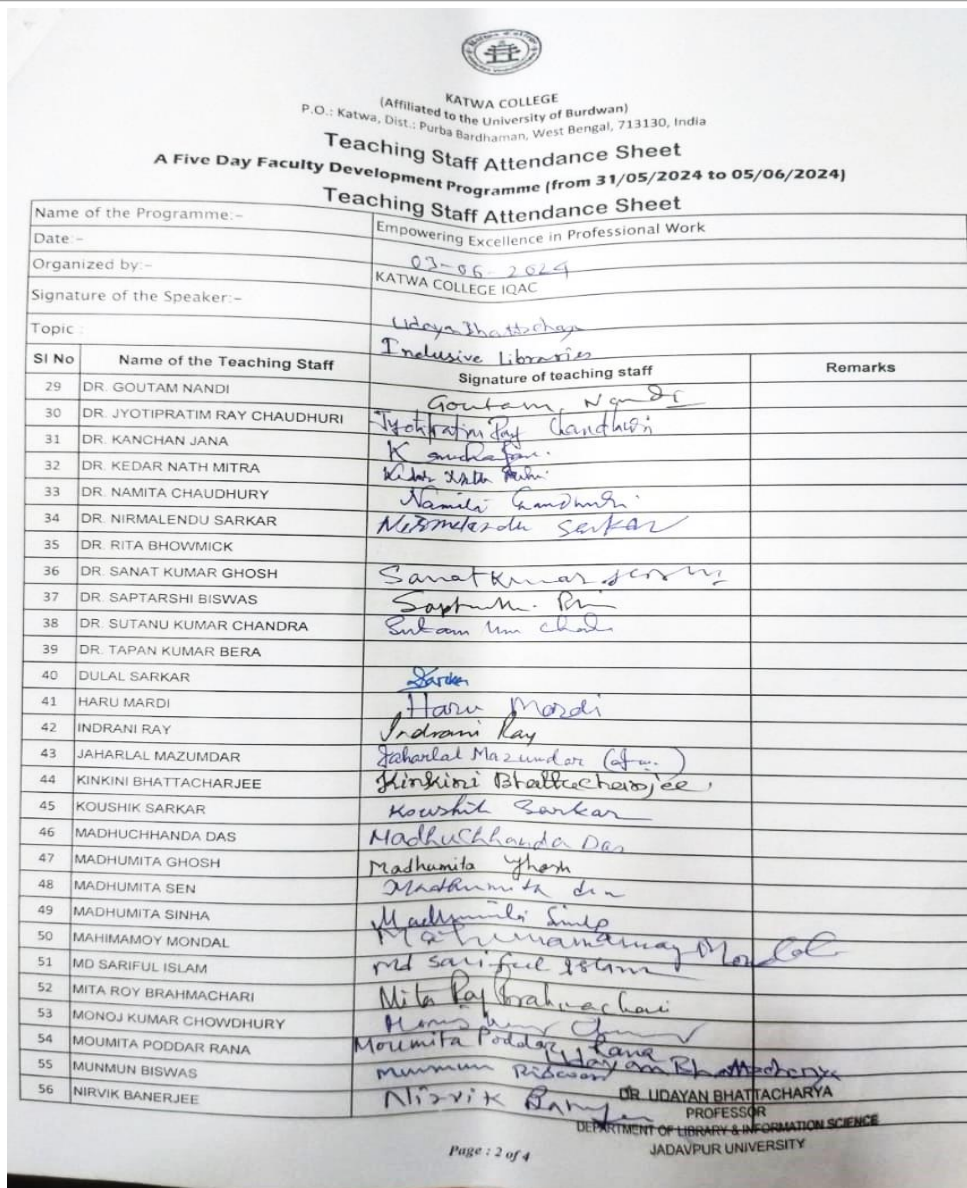 KATWA COLLEGE
(Affiliated to the University of Burdwan)
P.O.: Katwa, Dist.: Purba Bardhaman, West Bengal, 713130, India
Teaching Staff Attendance Sheet
A Five Day Faculty Development Programme (from 31/05/2024 to 05/06/2024)
Teaching Staff Attendance Sheet
Name of the Programme:- Empowering Excellence in Professional Work
Date:- 03-06-2024
Organized by:- KATWA COLLEGE IQAC
Signature of the Speaker:-
Topic : Inclusive Libraries
Sl No Name of the Teaching Staff Signature of teaching staff Remarks
29 DR. GOUTAM NANDI Goutam Nandi
30 DR. JYOTIPRATIM RAY CHAUDHURI Jyotipratim Ray Chaudhuri
31 DR. KANCHAN JANA
32 DR. KEDAR NATH MITRA
33 DR. NAMITA CHAUDHURY Namita
34 DR. NIRMALENDU SARKAR Nirmalendu Sarkar
35 DR. RITA BHOWMICK
36 DR. SANAT KUMAR GHOSH Sanat Kumar
37 DR. SAPTARSHI BISWAS
38 DR. SUTANU KUMAR CHANDRA
39 DR. TAPAN KUMAR BERA
40 DULAL SARKAR Sarkar
41 HARU MARDI Haru Mardi
42 INDRANI RAY Indrani Ray
43 JAHARLAL MAZUMDAR Jaharlal Mazumdar
44 KINKINI BHATTACHARJEE Kinkini Bhattacharjee
45 KOUSHIK SARKAR Koushik Sarkar
46 MADHUCHHANDA DAS Madhuchhanda Das
47 MADHUMITA GHOSH Madhumita Ghosh
48 MADHUMITA SEN Madhumita
49 MADHUMITA SINHA
50 MAHIMAMOY MONDAL Mondal
51 MD SARIFUL ISLAM Md Sariful Islam
52 MITA ROY BRAHMACHARI Mita Roy Brahmachari
53 MONOJ KUMAR CHOWDHURY
54 MOUMITA PODDAR RANA Moumita Poddar Rana
55 MUNMUN BISWAS Munmun Biswas Udayan Bhattacharya
56 NIRVIK BANERJEE Nirvik
DR. UDAYAN BHATTACHARYA
PROFESSOR
DEPARTMENT OF LIBRARY & INFORMATION SCIENCE
JADAVPUR UNIVERSITY
Page : 2 of 4